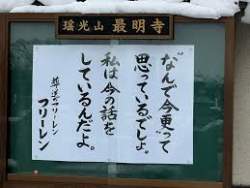 瑶光山 最明寺
“なんで今更”って
思っているでしょ。
私は今の話を
しているんだよ。
葬送のフリーレン
フリーレン